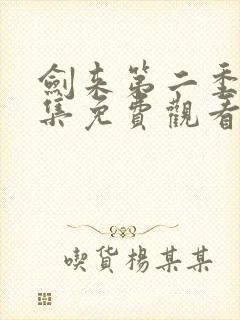 劍来第二季
集免費觀看
喫货楊某某